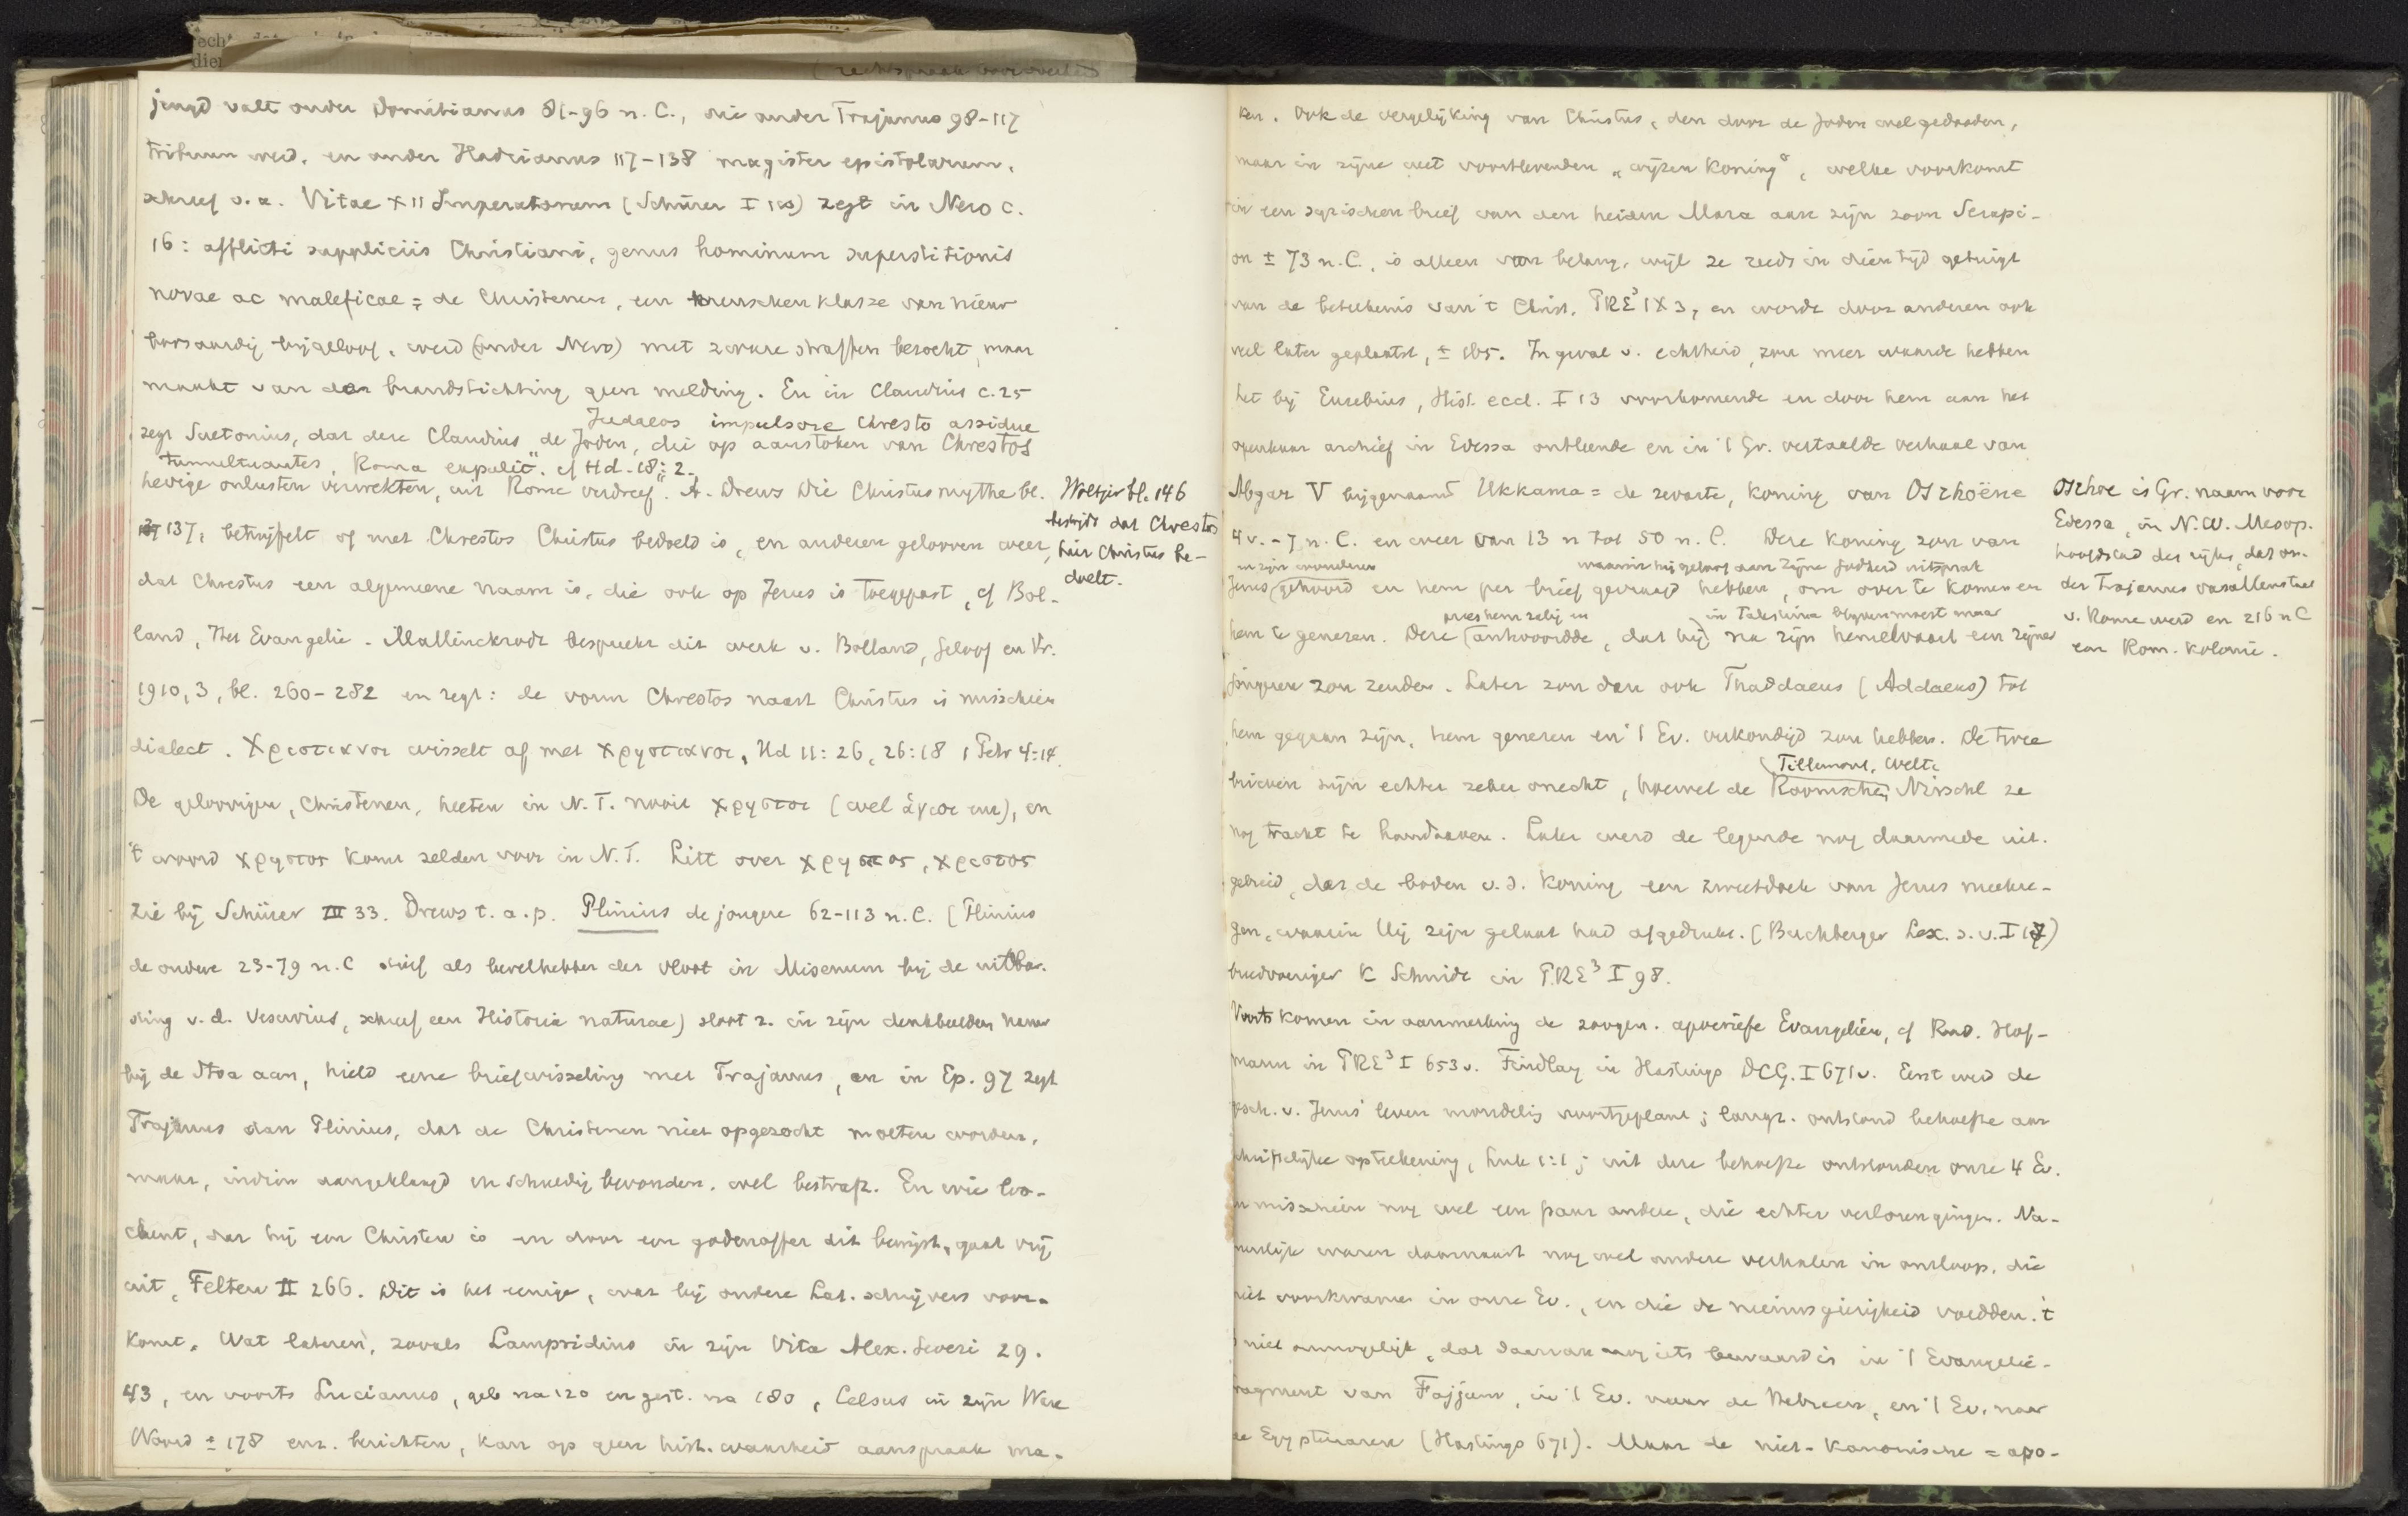 jeugd valt onder Domitianus 81-96 n. C., die onder Trajanus 98-117
tribuun werd, en onder Hadrianus 117-138 magister epistolarum,
schreef o.a. Vitae XII Imperatorum (Schürer I 100) zegt in Nero c.
16: afflicti suppliciis Christiani, genus hominum superstitionis
novae ac maleficae = de Christenen, een menschenklasse van nieuw
boosaardig bijgeloof, werd (onder Nero) met zware straffen bezocht, maar
maakt van den brandstichting geen melding. En in Claudius c. 25
Judaeos impulsore Chresto assidue
zegt Suetonius, dat deze Claudius de Joden, die op aanstoken van Chrestos
tumultuantes, Roma expulit". cf Hd. 18:2.
hevige onlusten verwekten, uit Rome verdreef". A. Drews Die Christusmythe bl.
137, betwijfelt of met Chrestos Christus bedoeld is, en anderen gelooven weer,
dat Chrestus een algemeene naam is, die ook op Jezus is toegepast, cf Bol-
land, Het Evangelie. Mallinckrodt bespreekt dit werk v. Bolland, Geloof en Vr.
1910, 3, bl. 260-282 en zegt: de vorm Chrestos naast Christus is misschien
dialect. Χριστιανοι wisselt af met Χρηστιανοι, Hd 11:26, 26:18 1 Petr 4:14.
De geloovigen, Christenen, heeten in N.T. nooit χρηστοι (wel ἁγιοι enz), en
't woord χρηστος komt zelden voor in N.T. Litt over χρηστος, χριστος
zie bij Schürer III 33. Drews t.a.p. Plinius de jongere 62-113 n. C. (Plinius
de oudere 23-79 n. C stierf als bevelhebber der vloot in Misenum bij de uitbar-
sting v.d. Vesuvius, schreef een Historia naturae) sloot z. in zijn denkbeelden
bij de Stoa aan, hield eene briefwisseling met Trajanus, en in Ep. 97 zegt
Trajanus aan Plinius, dat de Christenen niet opgezocht moeten worden,
maar, indien aangeklaagd en schuldig bevonden, wel bestraft. En wie loo-
chent, dat hij een Christen is en door een godenoffer dit bewijst, gaat vrij
uit, Felten II 266. Dit is het eenige, wat bij oudere Lat. schrijvers voor-
komt. Wat lateren, zooals Lampridius in zijn Vita Alex. Severi 29.
43, en voorts Lucianus, geb na 120 en gest. na 180, Celsus in zijn Ware
Woord ± 178 enz. berichten, kan op geen hist. waarheid aanspraak ma-
Woltjer bl. 146
bestrijdt dat Chrestos
hier Christus be-
doelt.
ken. Ook de vergelijking van Christus, den door de Joden wel gedooden,
maar in zijne wet voortlevenden „wijzen koning", welke voorkomt
in een syrischen brief van den heiden Mara aan zijn zoon Serapi-
on ± 73 n. C., is alleen van belang, wijl ze reeds in dien tijd getuigt
van de beteekenis van 't Christ. PRE³ IX 3, en wordt door anderen ook
veel later geplaatst, ± 165. In geval v. echtheid, zou meer waarde hebben
het bij Eusebius, Hist. eccl. I 13 voorkomende en door hem aan het
openbaar archief in Edessa ontleende en in 't Gr. vertaalde verhaal van
Abgar V bijgenaamd Ukkama = de zwarte, koning van Oszhoëne
4 v. - 7 n. C. en weer van 13 n tot 50 n. C. Deze koning zou van
en zijn wonderen waarin hij geloof aan zijne Godheid uitsprak
Jezus gehoord en hem per brief gevraagd hebben, om over te komen en
prees hem zalig en in Palestina blijven moest maar
hem te genezen. Deze antwoordde, dat hij na zijn hemelvaart een zijner
jongeren zou zenden. Later zou dan ook Thaddaeus (Addaeus) tot
hem gegaan zijn, hem genezen en 't Ev. verkondigd zou hebben. De twee
Tillemont, Welte
brieven zijn echter zeker onecht, hoewel de Roomschen Nirschl ze
nog tracht te handhaven. Later werd de legende nog daarmede uit-
gebreid, dat de boden v.d. koning een zweetdoek van Jezus meekre-
gen, waarin Hij zijn gelaat had afgedrukt. (Buchberger Lex. s.v. I 17)
breedvoeriger K Schmidt in PRE³ I 98.
Voorts komen in aanmerking de zoogen. apocriefe Evangeliën, cf Rud. Hof-
mann in PRE³ I 653 v. Findlay in Hastings DCG. I 671 v. Eerst werd de
gesch. v. Jezus' leven mondelijk voortgeplant; langz. ontstond behoefte aan
schriftelijke opteekening, Luk 1:1; uit deze behoefte ontstonden onze 4 Ev.
en misschien nog wel een paar andere, die echter verloren gingen. Na-
tuurlijk waren daarnaast nog wel andere verhalen in omloop, die
niet voorkwamen in onze Ev., en die de nieuwsgierigheid voedden. 't
is niet onmogelijk, dat daarvan nog iets bewaard is in 't Evangelië-
fragment van Fajjum, in 't Ev. naar de Hebreën, en 't Ev. naar
de Egyptenaren (Hastings 671). Maar de niet-kanonische = apo-
Oszhoe is Gr. naam voor
Edessa, in N.W. Mesop.
hoofdstad des rijks, dat on-
der Trajanus vasallenstaat
v. Rome werd en 216 n C
een Rom. kolonie.